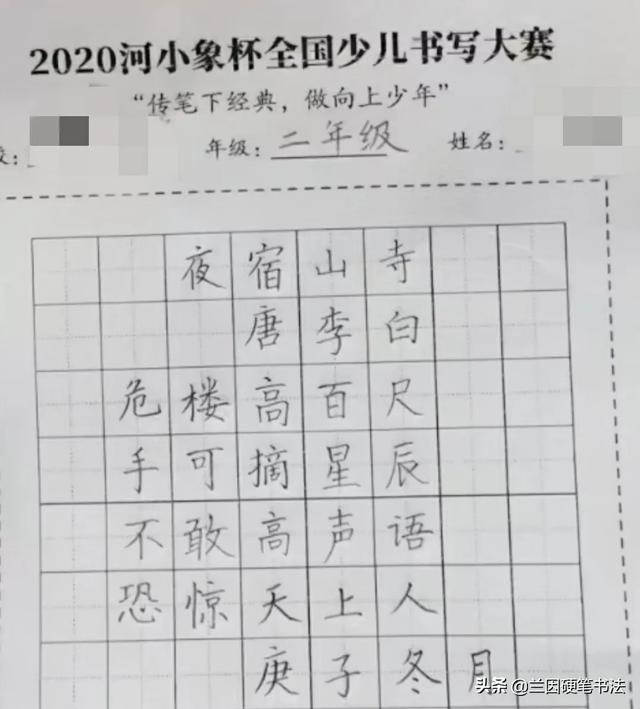 2020河小象杯全国少儿书写大赛
“传笔下经典，做向上少年”
年级：二年级 姓名：
夜宿山寺
唐李白
危楼高百尺
手可摘星辰
不敢高声语
恐惊天上人
庚子冬月
头条 @兰因硬笔书法